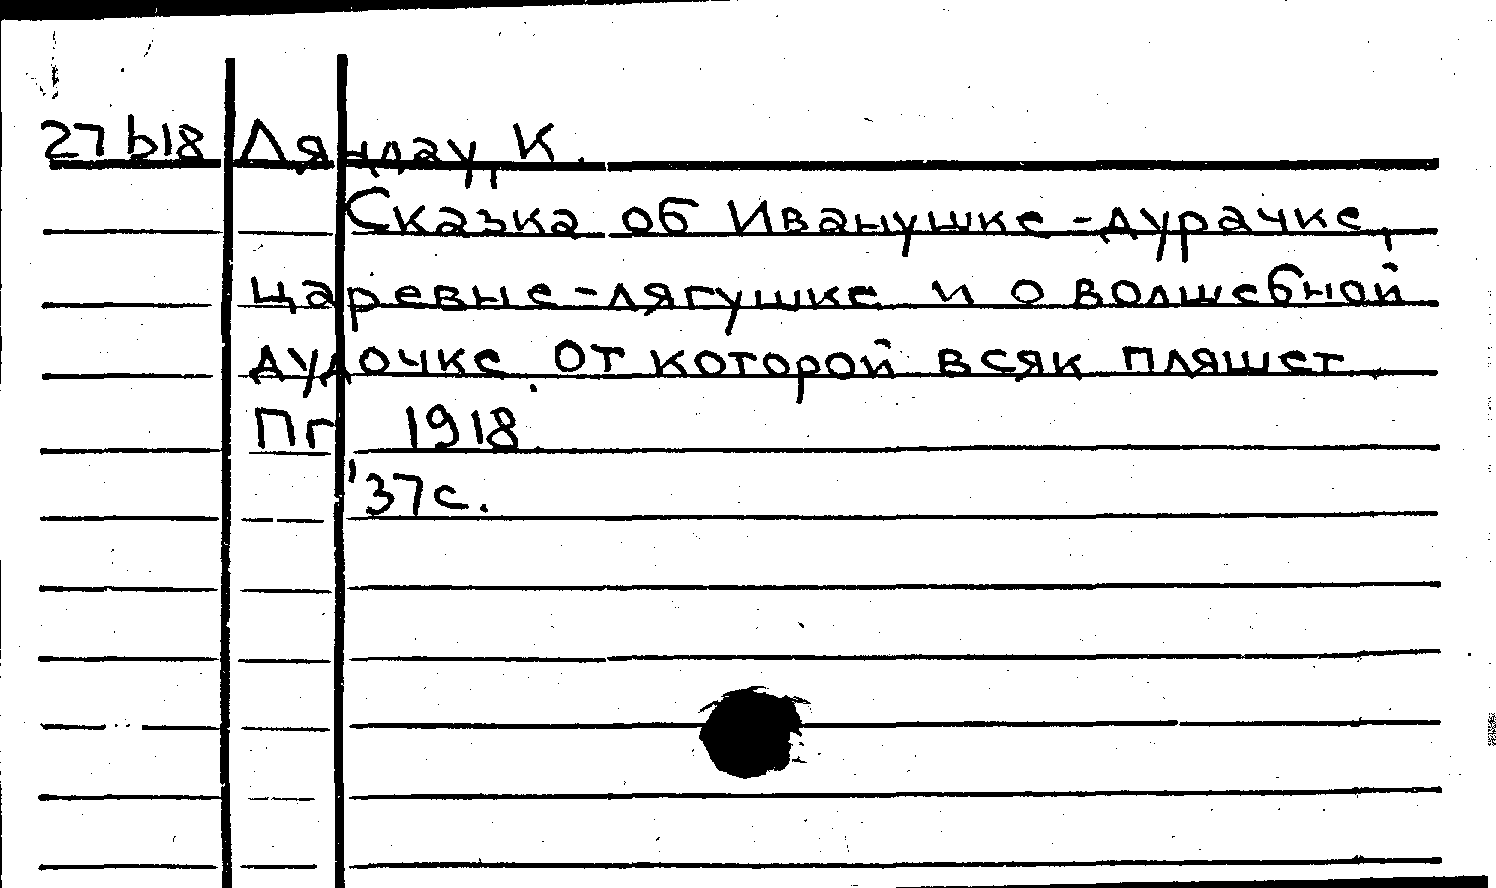 27 b18 Ляндау, К.
Сказка об Иванушке-дурачке,
царевне-лягушке и о волшебной
дудочке, от которой всяк пляшет
Пг 1918.
37с.